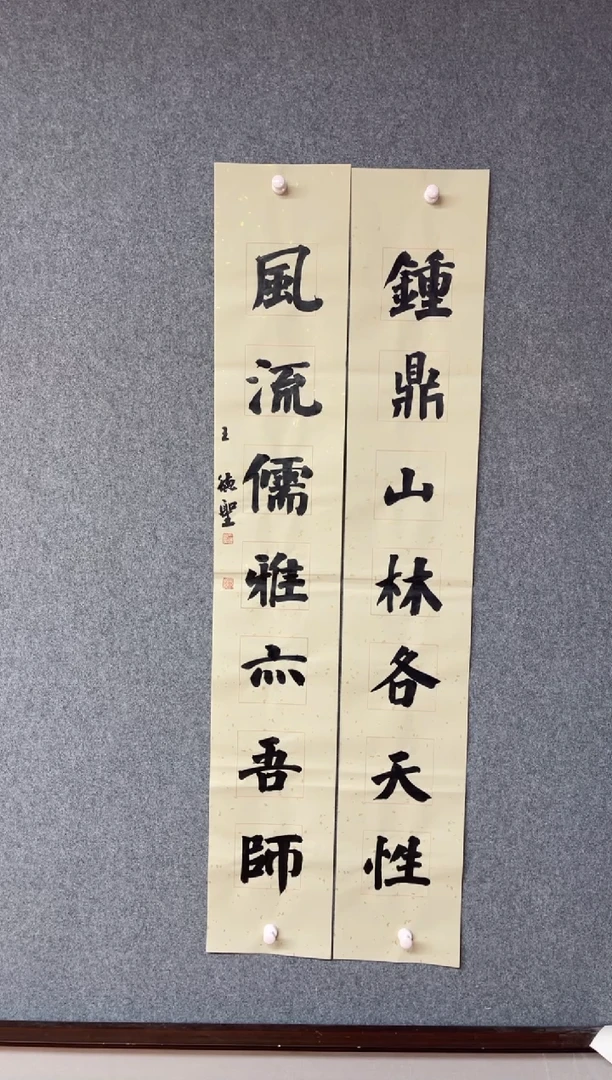 鍾鼎山林各天性
風流儒雅亦吾師
王德聖